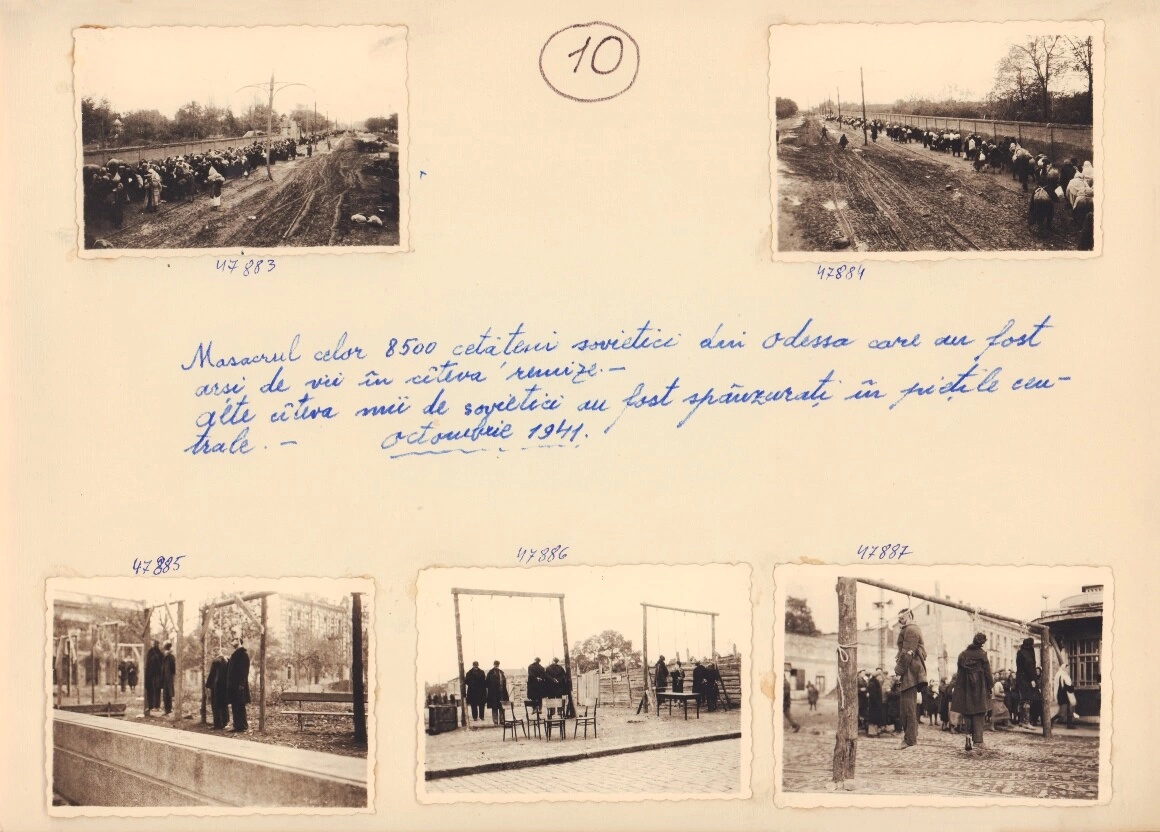 10
47883
47884
Masacrul celor 8500 cetățeni sovietici din Odessa care au fost
arși de vii în cîteva remize.-
Alte cîteva mii de sovietici au fost spânzurați în piețile cen-
trale.- Octombrie 1941.
47885
47886
47887